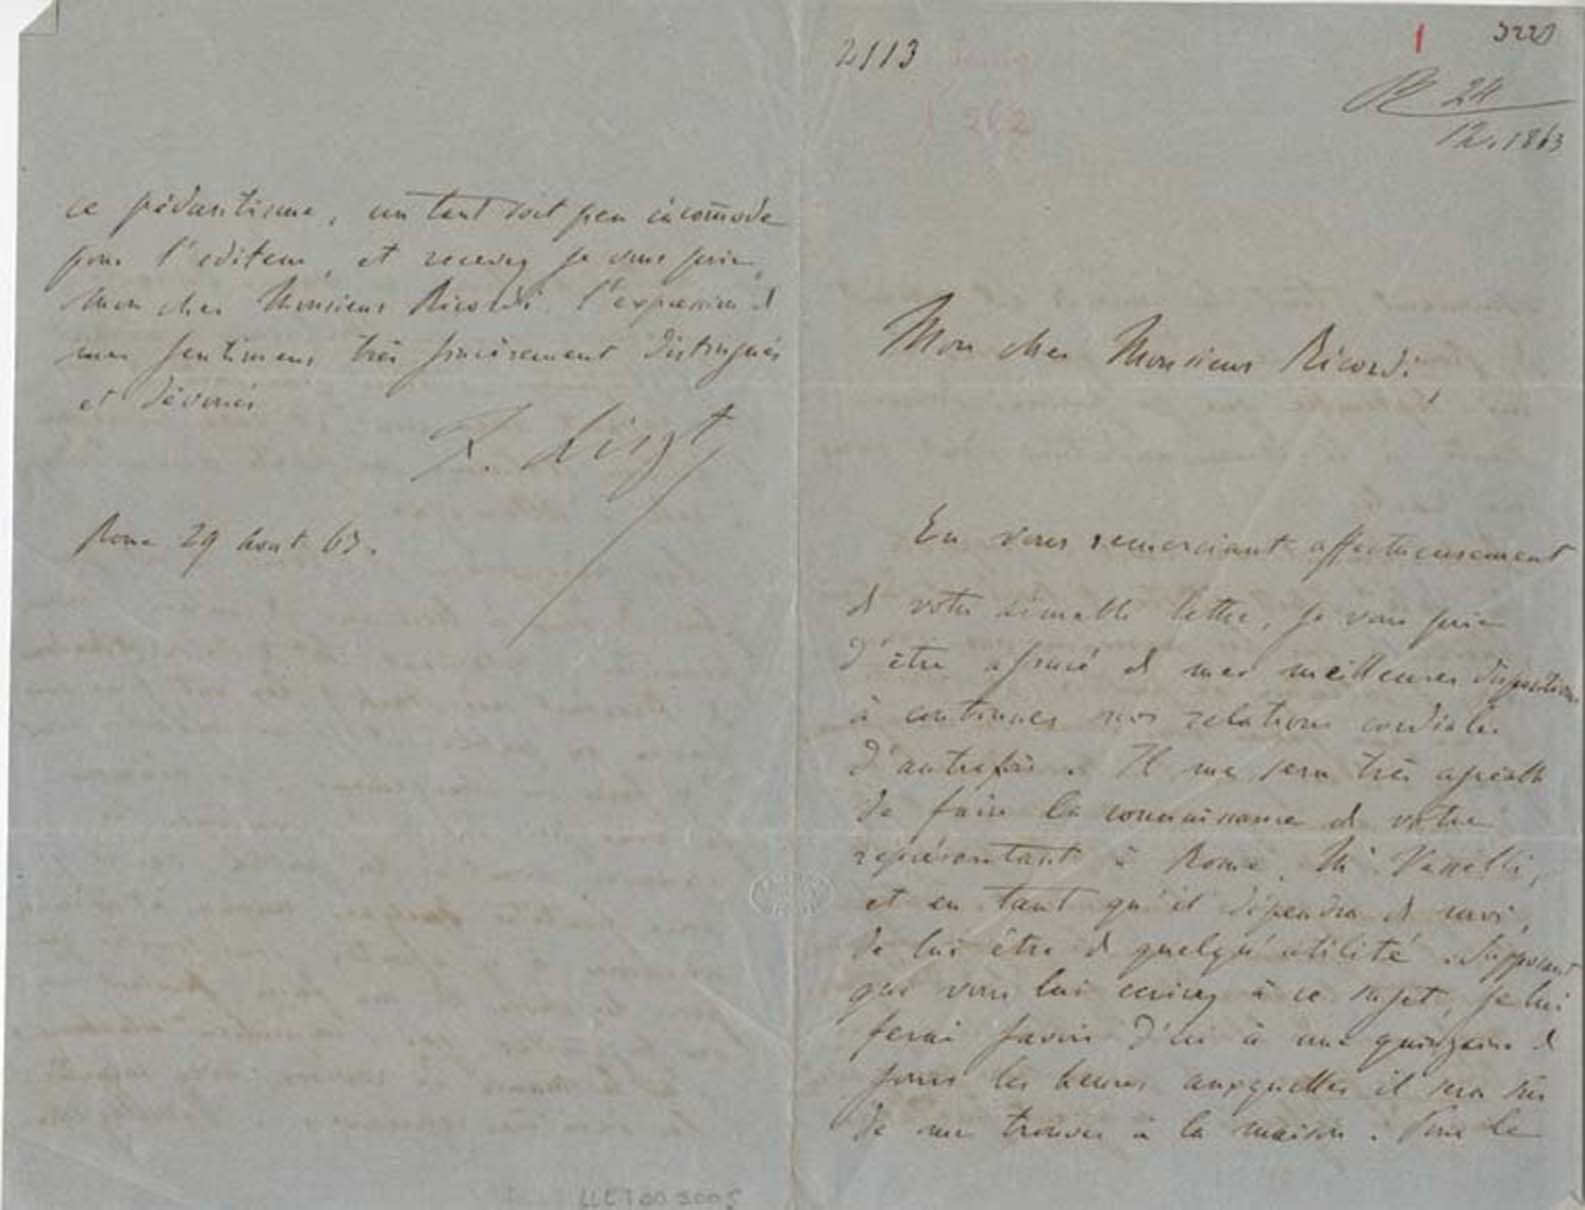 ce pédantisme, un tant soit peu incom̄ode
pour l'editeur, et recevez je vous prie,
Mon cher Monsieur Ricordi, l'expression d
mes sentimens très sincèrement distingués
et dévoués
F. Liszt
Rome 29 Aout 63.
2113
1
R 24
12.1863
Mon cher Monsieur Ricordi,
En vous remerciant affectueusement
de votre aimable lettre, je vous prie
d'être assuré de mes meilleures dispositions
à continuer nos relations cordiales
d'autrefois. Il me sera très agréable
de faire la connaissance de votre
représentant à Rome, Mr
et en tant qu'il dépendra de moi,
de lui être de quelqu'utilité. Supposant
que vous lui écrivez à ce sujet, je lui
ferai savoir d'ici à une quinzaine de
jours les heures auxquelles il sera sûr
de me trouver à la maison. Pour le